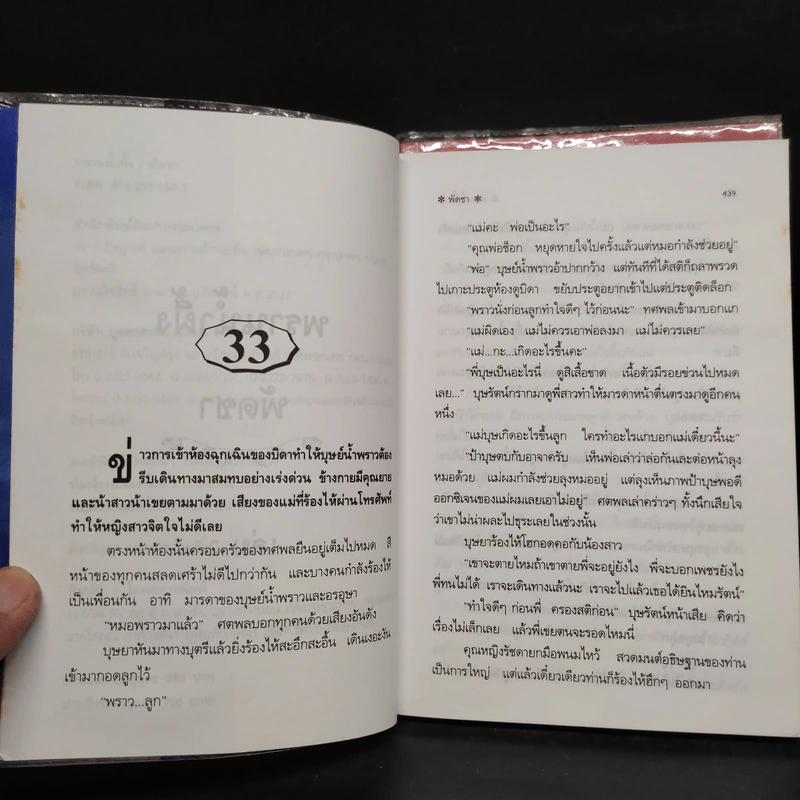 33
ข่าวการเข้าห้องฉุกเฉินของบิดาทำให้บุษย์น้ำพราวต้อง
รีบเดินทางมาสมทบอย่างเร่งด่วน ข้างกายมีคุณยาย
และน้าสาวน้าเขยตามมาด้วย เสียงของแม่ที่ร้องไห้ผ่านโทรศัพท์
ทำให้หญิงสาวจิตใจไม่ดีเลย
ตรงหน้าห้องนั้นครอบครัวของทศพลยืนอยู่เต็มไปหมด สี
หน้าของทุกคนสลดเศร้าไม่ดีไปกว่ากัน และบางคนกำลังร้องไห้
เป็นเพื่อนกัน อาทิ มารดาของบุษย์น้ำพราวและอรอุษา
"หมอพราวมาแล้ว" ศตพลบอกทุกคนด้วยเสียงอันดัง
บุษยาหันมาทางบุตรีแล้วยิ่งร้องไห้สะอึกสะอื้น เดินเงอะงัน
เข้ามากอดลูกไว้
"พราว...ลูก"
* พัดชา *
439
"แม่คะ พ่อเป็นอะไร"
"คุณพ่อช็อก หยุดหายใจไปครั้งแล้วแต่หมอกำลังช่วยอยู่"
"พ่อ" บุษย์น้ำพราวอ้าปากกว้าง แต่ทันทีที่ได้สติก็ถลาพรวด
ไปเกาะประตูห้องดูบิดา ขยับประตูอยากเข้าไปแต่ประตูติดล็อก
"พราวนั่งก่อนลูกทำใจดีๆ ไว้ก่อนนะ" ทศพลเข้ามาบอกแก
"แม่ผิดเอง แม่ไม่ควรเอาพ่อลงมา แม่ไม่ควรเลย"
"แม่...กะ...เกิดอะไรขึ้นคะ"
"พี่บุษเป็นอะไรนี่ ดูสิเสื้อขาด เนื้อตัวมีรอยข่วนไปหมด
เลย..." บุษรัตน์กรากมาดูพี่สาวทำให้มารดาหน้าตื่นตรงมาดูอีกคน
หนึ่ง
"แม่บุษเกิดอะไรขึ้นลูก ใครทำอะไรแกบอกแม่เดี๋ยวนี้นะ"
"ป้าบุษตบกับอาจาครับ เห็นพ่อเล่าว่าล่อกันเละต่อหน้าลุง
หมอด้วย แม่ผมกำลังช่วยลุงหมออยู่ แต่ลุงเห็นภาพป้าบุษพอดี
ออกซิเจนของแม่ผมเลยเอาไม่อยู่" ศตพลเล่าคร่าวๆ ทั้งนึกเสียใจ
ว่าเขาไม่น่าผละไปธุระเลยในช่วงนั้น
บุษยาร้องไห้โฮกอดคอกับน้องสาว
"เขาจะตายไหมถ้าเขาตายพี่จะอยู่ยังไง พี่จะบอกเพชรยังไง
พี่ทนไม่ได้ เราจะเดินทางแล้วนะ เราจะไปแล้วเธอได้ยินไหมรัตน์"
"ทำใจดีๆ ก่อนพี่ ครองสติก่อน" บุษรัตน์หน้าเสีย คิดว่า
เรื่องไม่เล็กเลย แล้วพี่เขยตนจะรอดไหมนี่
คุณหญิงรัชดายกมือพนมไหว้ สวดมนต์อธิษฐานของท่าน
เป็นการใหญ่ แต่แล้วเดี๋ยวเดียวท่านก็ร้องไห้ฮึกๆ ออกมา